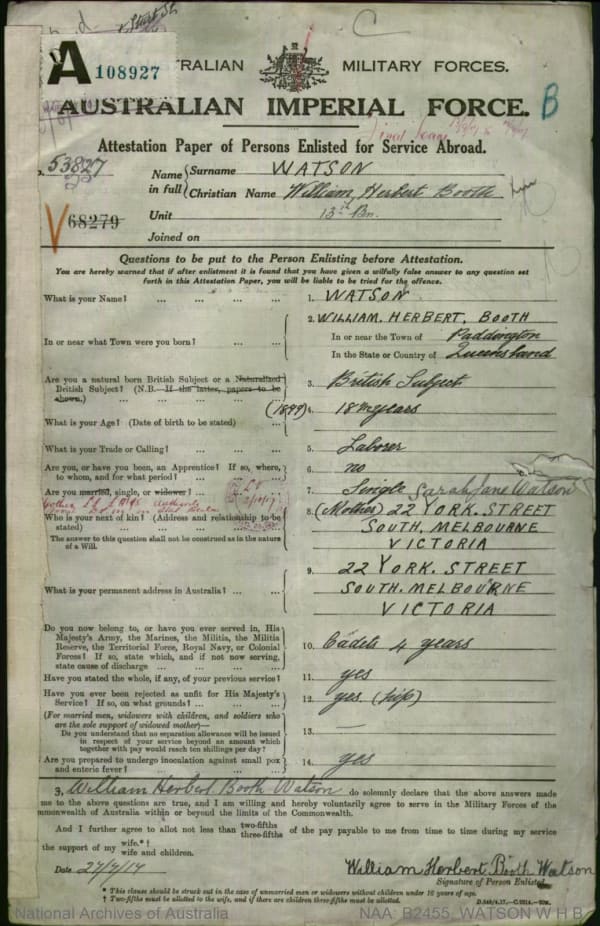 Sturt St
A 108927
TRALIAN MILITARY FORCES.
AUSTRALIAN IMPERIAL FORCE. B
Attestation Paper of Persons Enlisted for Service Abroad.
53827
Name in full { Surname WATSON
Christian Name William Herbert Booth
V 68279
Unit 13th Rm.
Joined on
Questions to be put to the Person Enlisting before Attestation.
You are hereby warned that if after enlistment it is found that you have given a wilfully false answer to any question set
forth in this Attestation Paper, you will be liable to be tried for the offence.
What is your Name? ... ... ... ... 1. WATSON
2. WILLIAM. HERBERT. BOOTH
In or near what Town were you born? ... ... In or near the Town of Paddington
In the State or Country of Queensland
Are you a natural born British Subject or a Naturalized
British Subject? (N.B.—If the latter, papers to be
shown.) ... ... ... ... ... 3. British Subject
What is your Age? (Date of birth to be stated) ... (1899) 4. 18 years
What is your Trade or Calling? ... ... ... 5. Laborer
Are you, or have you been, an Apprentice? If so, where,
to whom, and for what period? ... ... ... 6. no
Are you married, single, or widower? ... ... 7. Single Sarah Jane Watson
Who is your next of kin? (Address and relationship to be
stated) ... ... ... ... 8. (Mother) 22 YORK. STREET
SOUTH. MELBOURNE
VICTORIA
The answer to this question shall not be construed as in the nature
of a Will.
What is your permanent address in Australia? ... ... 9. 22 YORK. STREET
SOUTH. MELBOURNE
VICTORIA
Do you now belong to, or have you ever served in, His
Majesty's Army, the Marines, the Militia, the Militia
Reserve, the Territorial Force, Royal Navy, or Colonial
Forces? If so, state which, and if not now serving,
state cause of discharge ... ... ... 10. Cadets 4 years
Have you stated the whole, if any, of your previous service? 11. yes
Have you ever been rejected as unfit for His Majesty's
Service? If so, on what grounds? ... ... ... 12. yes (hip)
(For married men, widowers with children, and soldiers who
are the sole support of widowed mother)—
Do you understand that no separation allowance will be issued
in respect of your service beyond an amount which
together with pay would reach ten shillings per day? 13. —
Are you prepared to undergo inoculation against small pox
and enteric fever? ... ... ... ... 14. yes
I, William Herbert Booth Watson do solemnly declare that the above answers made
me to the above questions are true, and I am willing and hereby voluntarily agree to serve in the Military Forces of the
mmonwealth of Australia within or beyond the limits of the Commonwealth.
And I further agree to allot not less than two-fifths three-fifths of the pay payable to me from time to time during my service
the support of my wife.*† wife and children.
Date 27/7/17
William Herbert Booth Watson
Signature of Person Enlisted.
* This clause should be struck out in the case of unmarried men or widowers without children under 16 years of age.
† Two-fifths must be allotted to the wife, and if there are children three-fifths must be allotted.
National Archives of Australia NAA: B2455, WATSON W H B